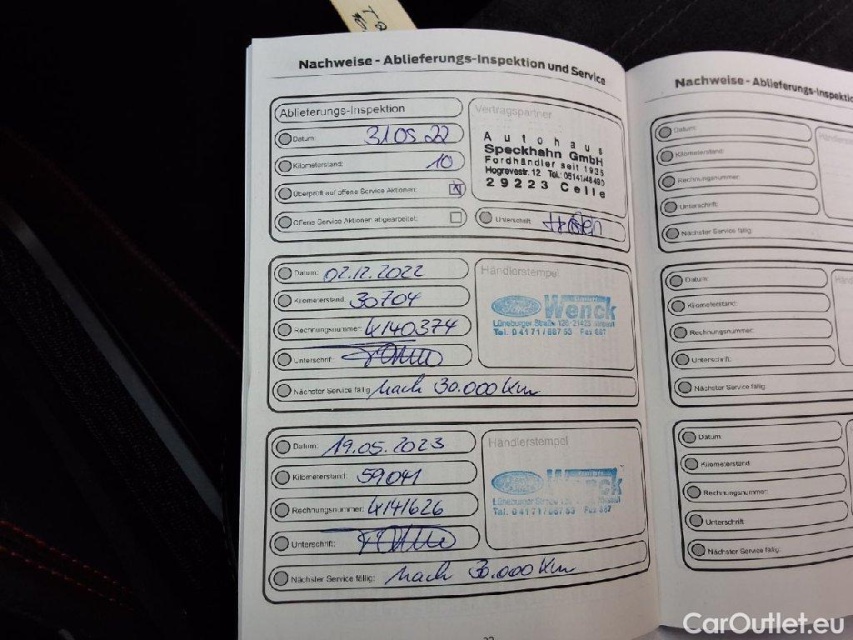 Nachweise - Ablieferungs-Inspektion und Service
Ablieferungs-Inspektion
Datum: 31.05.22
Kilometerstand: 10
Überprüft auf offene Service Aktionen: x
Offene Service Aktionen abgearbeitet:
Vertragspartner
Autohaus
Speckhahn GmbH
Fordhändler seit 1925
Hogrevestr. 12 Tel.: 05141/48490
29223 Celle
Unterschrift:
Datum: 02.12.2022
Kilometerstand: 30704
Rechnungsnummer: 4140374
Unterschrift:
Nächster Service fällig: nach 30.000 Km
Händlerstempel
Ford Wenck
Lüneburger Straße
Tel. 04171/887 53 Fax 887
Datum: 19.05.2023
Kilometerstand: 59041
Rechnungsnummer: 4141626
Unterschrift:
Nächster Service fällig: nach 30.000 Km
Händlerstempel
Ford Wenck
Lüneburger
Tel. 04171/887 53 Fax 887
Nachweise - Ablieferungs-Inspektio
Datum:
Kilometerstand:
Rechnungsnummer:
Unterschrift:
Nächster Service fällig:
Datum:
Kilometerstand:
Rechnungsnummer:
Unterschrift:
Nächster Service fällig:
Datum:
Kilometerstand:
Rechnungsnummer:
Unterschrift:
Nächster Service fällig:
CarOutlet.eu